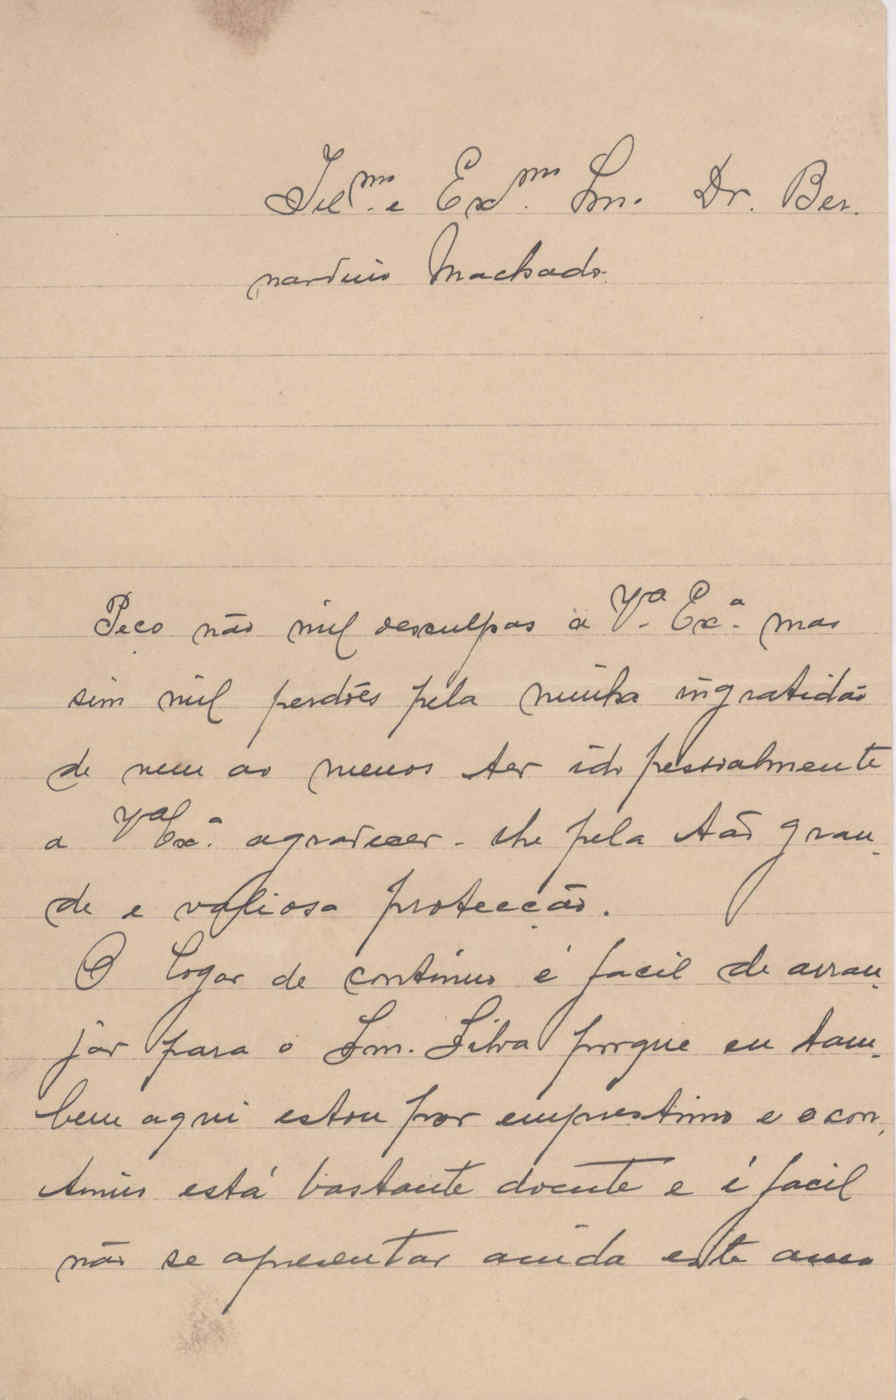 Ilmo. e Exmo. Snr. Dr. Ber-
nardino Machado.
Peço não mil desculpas a Va. Exa. mas
sim mil perdões pela minha ingratidão
de nem ao menos ter ido pessoalmente
a Va Exa. agradecer-lhe pela tão gran-
de e valiosa protecção.
O logar de contínuo é facil de arran-
jar para o Snr. Silva porque eu tam-
bem aqui estou por emprestimo e o con-
tinuo está bastante doente e é facil
não se apresentar ainda este anno